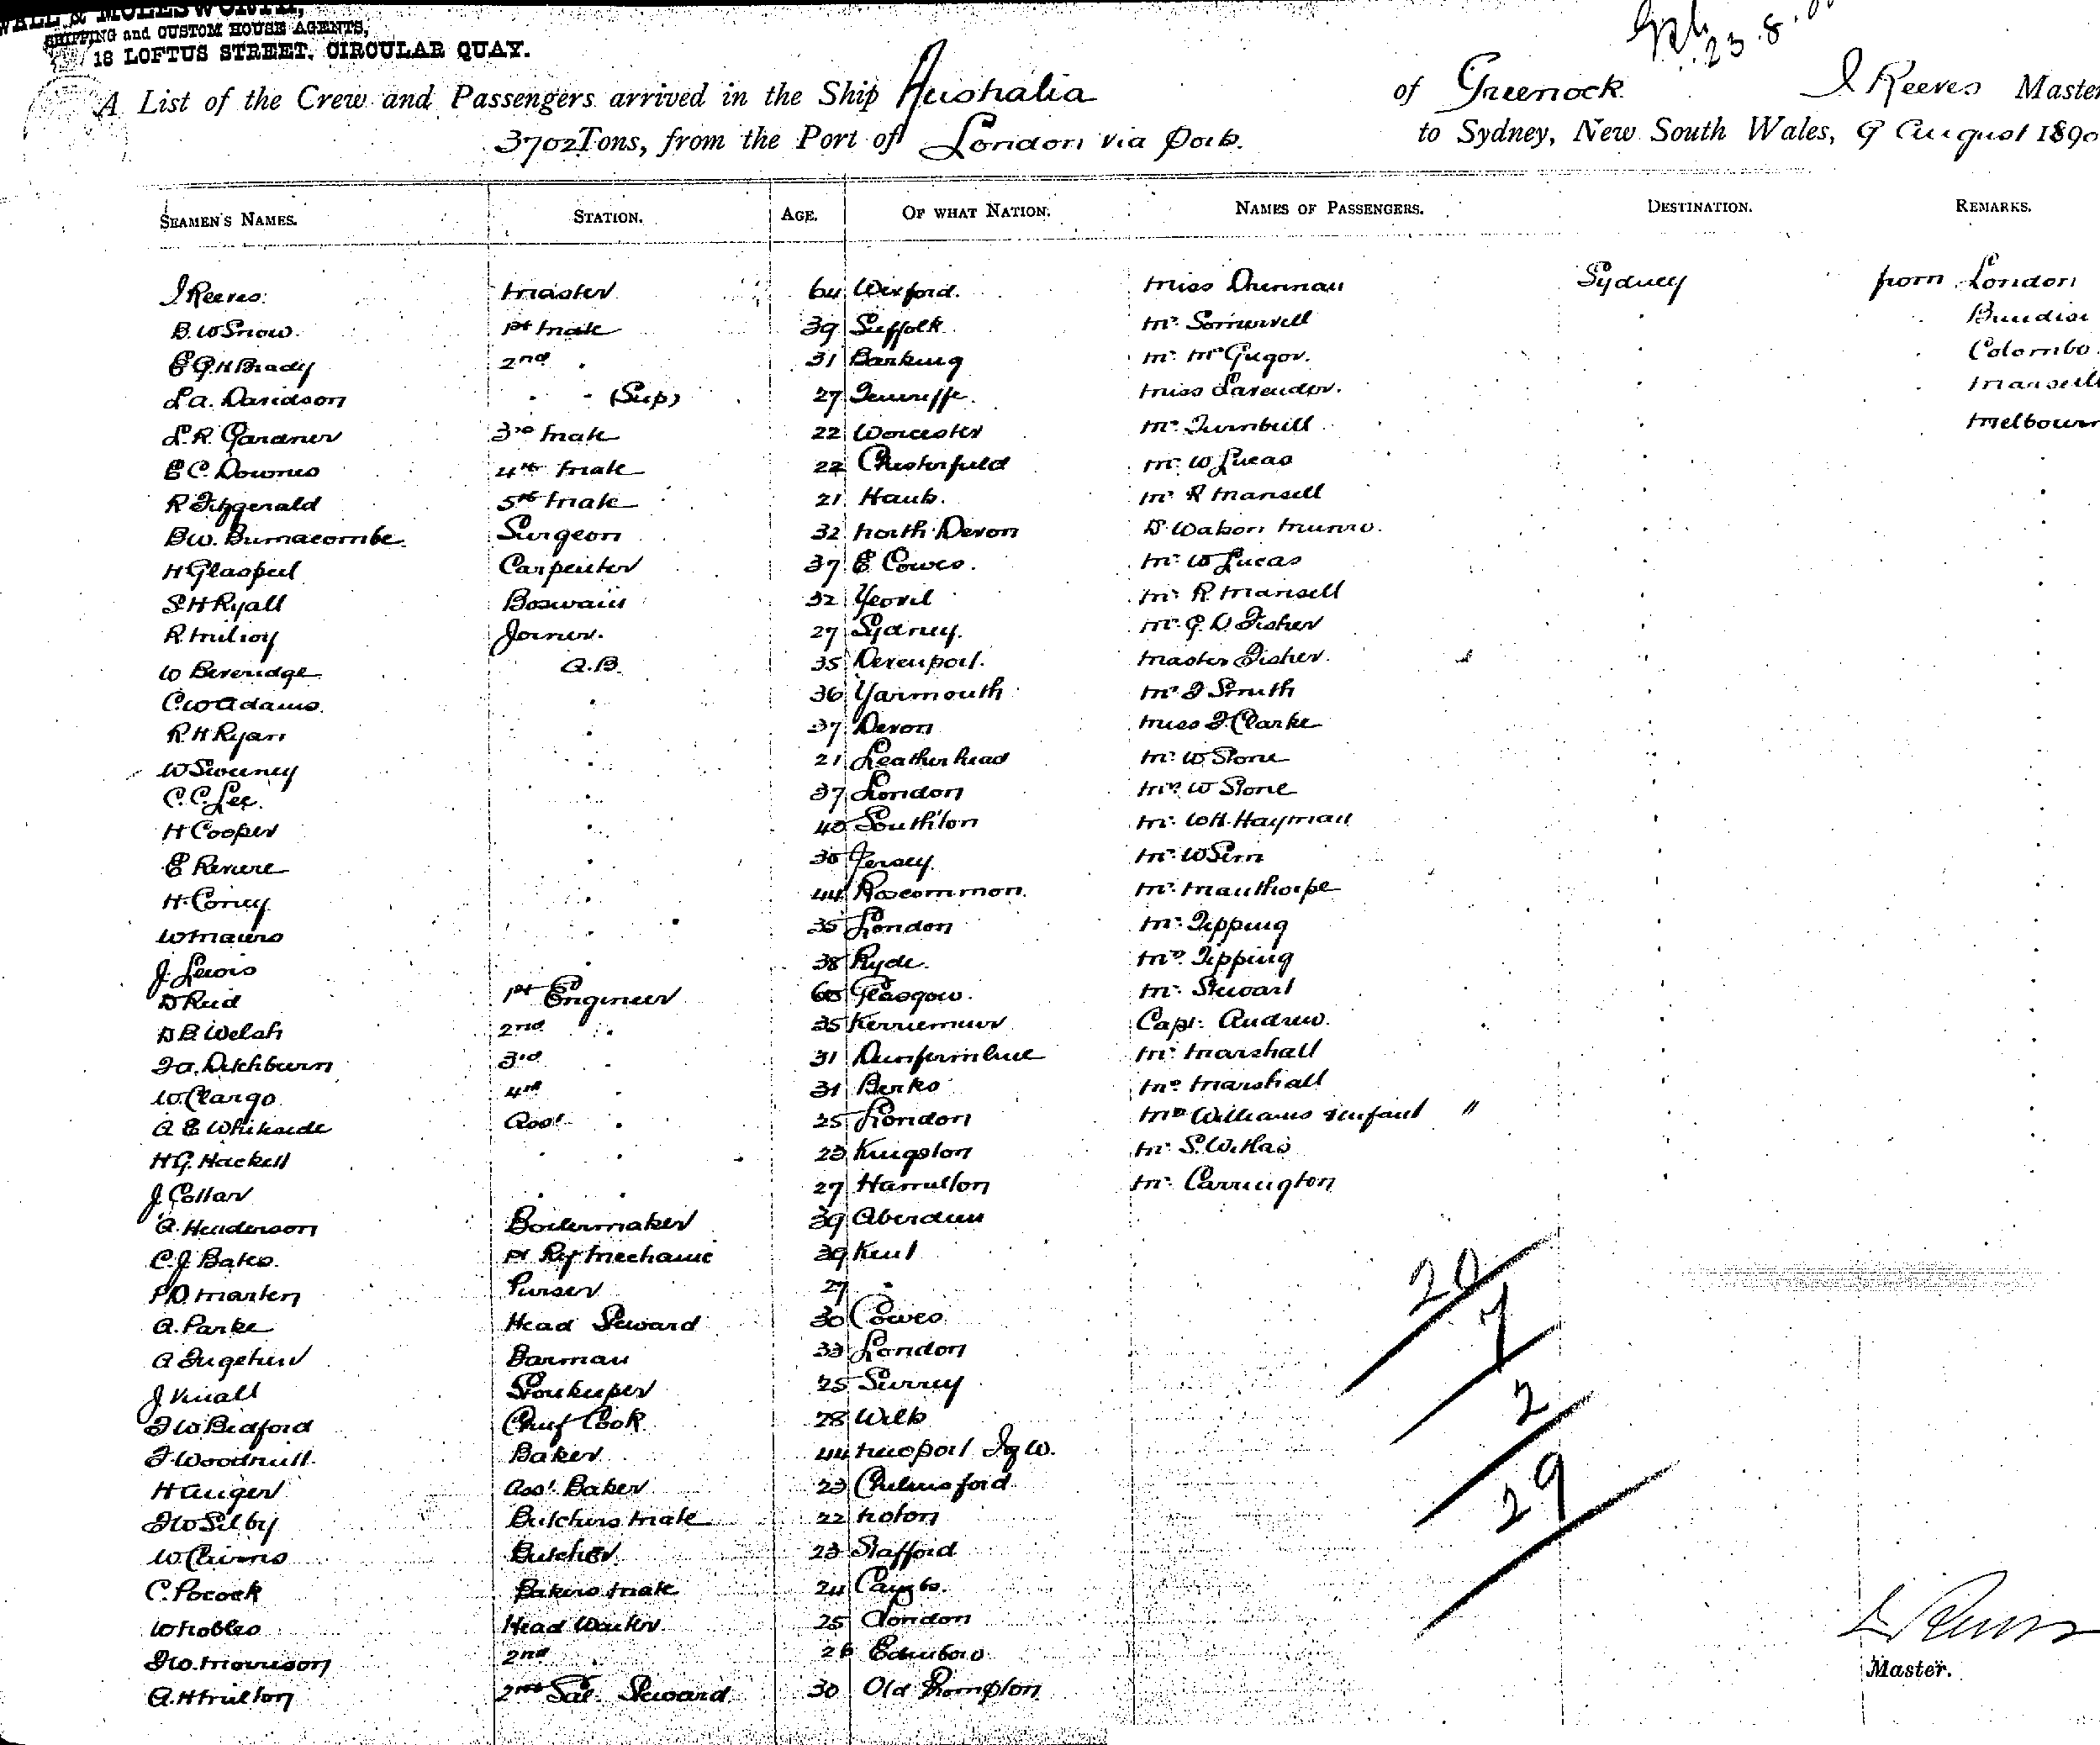 WALL & MOLESWORTH,
SHIPPING and CUSTOM HOUSE AGENTS,
18 LOFTUS STREET, CIRCULAR QUAY.
23.8.
A List of the Crew and Passengers arrived in the Ship Australia of Greenock J Reeves Master
3702 Tons, from the Port of London via Ports. to Sydney, New South Wales, 9 August 1890
SEAMEN'S NAMES. STATION. AGE. OF WHAT NATION. NAMES OF PASSENGERS. DESTINATION. REMARKS.
J Reeves Master 64 Wexford. Miss Sydney from London
B. W Snow. 1st Mate 39 Suffolk Mr Somervell
E G H Brady 2nd 31 Barking Mr McGregor. Colombo
L a. Davidson (Sup) 27 Teneriffe. Miss Lavender. Marseill
L. R. Gardner 3rd Mate 22 Worcester Mr Turnbull Melbourn
E C. Downes 4th Mate 22 Chesterfield Mr W Lucas
R Fitzgerald 5th Mate 21 Hants. Mr R Mansell
B W. Burnacombe Surgeon 32 North Devon Dr Watson Munro.
H Glaspell Carpenter 37 E Cowes. Mr W Lucas
S. H Ryall Boswain 32 Yeovil Mr R Mansell
R. Milroy Joiner. 27 Sydney. Mr G. D. Fisher
W Beveridge A.B. 35 Devenport. Master Fisher.
C W Adams. 36 Yarmouth Mr J Smith
R. H Ryan 37 Devon Miss J. Clarke
W Sweeney 21 Leatherhead Mr W Stone
C. C. Lee. 37 London Mrs W Stone
H Cooper 40 South'ton Mr W H. Hayman
E Revere 30 Jersey. Mr W Sim
H. Coney 44 Roscommon. Mr Manthorpe
W 35 London Mr Tipping
J. Lewis 38 Ryde. Mrs Tipping
D Reid 1st Engineer 60 Glasgow. Mr Stewart
D B Welsh 2nd 35 Kerriemuir Capt. Andrew.
J a. Ditchburn 3rd 31 Dunfermline Mr Marshall
W. Clargo 4th 31 Berks Mrs Marshall
A E Whiteside Asst 25 London Mrs Williams & infant "
H G. Hackett 23 Kingston Mr S.
J. Collar 27 Hamilton Mr Carrington
A. Henderson Boilermaker 39 Aberdeen
C. J. Bates. 1st Ref Mechanic 39 Kent
P D. Marten Purser 27 "
A. Parke Head Steward 30 Cowes
A Barman 33 London
J Vinall Storekeeper 25 Surrey
F W Bedford Chief Cook 28 Wilts
F. Woodnutt Baker 44 Newport I of W.
H Auger Asst. Baker 23 Chelmsford
F W Silby Butchers Mate 22
W. Cairns Butcher 23 Stafford
C. Pocock Bakers Mate 24
W Nobles Head Waiter 25 London
F W. Morrison 2nd 26 Edinboro
A. H Milton 2nd Sal. Steward 30 Old Brompton
20
7
2
29
Master.